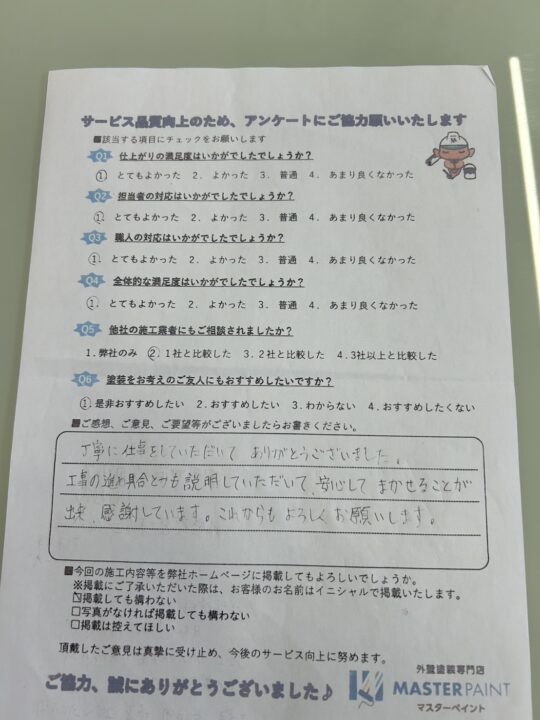 サービス品質向上のため、アンケートにご協力願いいたします
■該当する項目にチェックをお願いします
Q1 仕上がりの満足度はいかがでしたでしょうか？
①. とてもよかった 2. よかった 3. 普通 4. あまり良くなかった
Q2 担当者の対応はいかがでしたでしょうか？
①. とてもよかった 2. よかった 3. 普通 4. あまり良くなかった
Q3 職人の対応はいかがでしたでしょうか？
①. とてもよかった 2. よかった 3. 普通 4. あまり良くなかった
Q4 全体的な満足度はいかがでしたでしょうか？
①. とてもよかった 2. よかった 3. 普通 4. あまり良くなかった
Q5 他社の施工業者にもご相談されましたか？
1.弊社のみ ②.1社と比較した 3.2社と比較した 4.3社以上と比較した
Q6 塗装をお考えのご友人にもおすすめしたいですか？
①.是非おすすめしたい 2.おすすめしたい 3.わからない 4.おすすめしたくない
■ご感想、ご意見、ご要望等がございましたらお書きください。
丁寧に仕事をしていただいて ありがとうございました。
工事の進め具合とかも説明していただいて、安心して まかせることが
出来、感謝しています。これからも よろしく お願いします。
■今回の施工内容等を弊社ホームページに掲載してもよろしいでしょうか。
※掲載にご了承いただいた際は、お客様のお名前はイニシャルで掲載いたします。
☑掲載しても構わない
□写真がなければ掲載しても構わない
□掲載は控えてほしい
頂戴したご意見は真摯に受け止め、今後のサービス向上に努めます。
ご協力、誠にありがとうございました♪
外壁塗装専門店
MASTERPAINT
マスターペイント